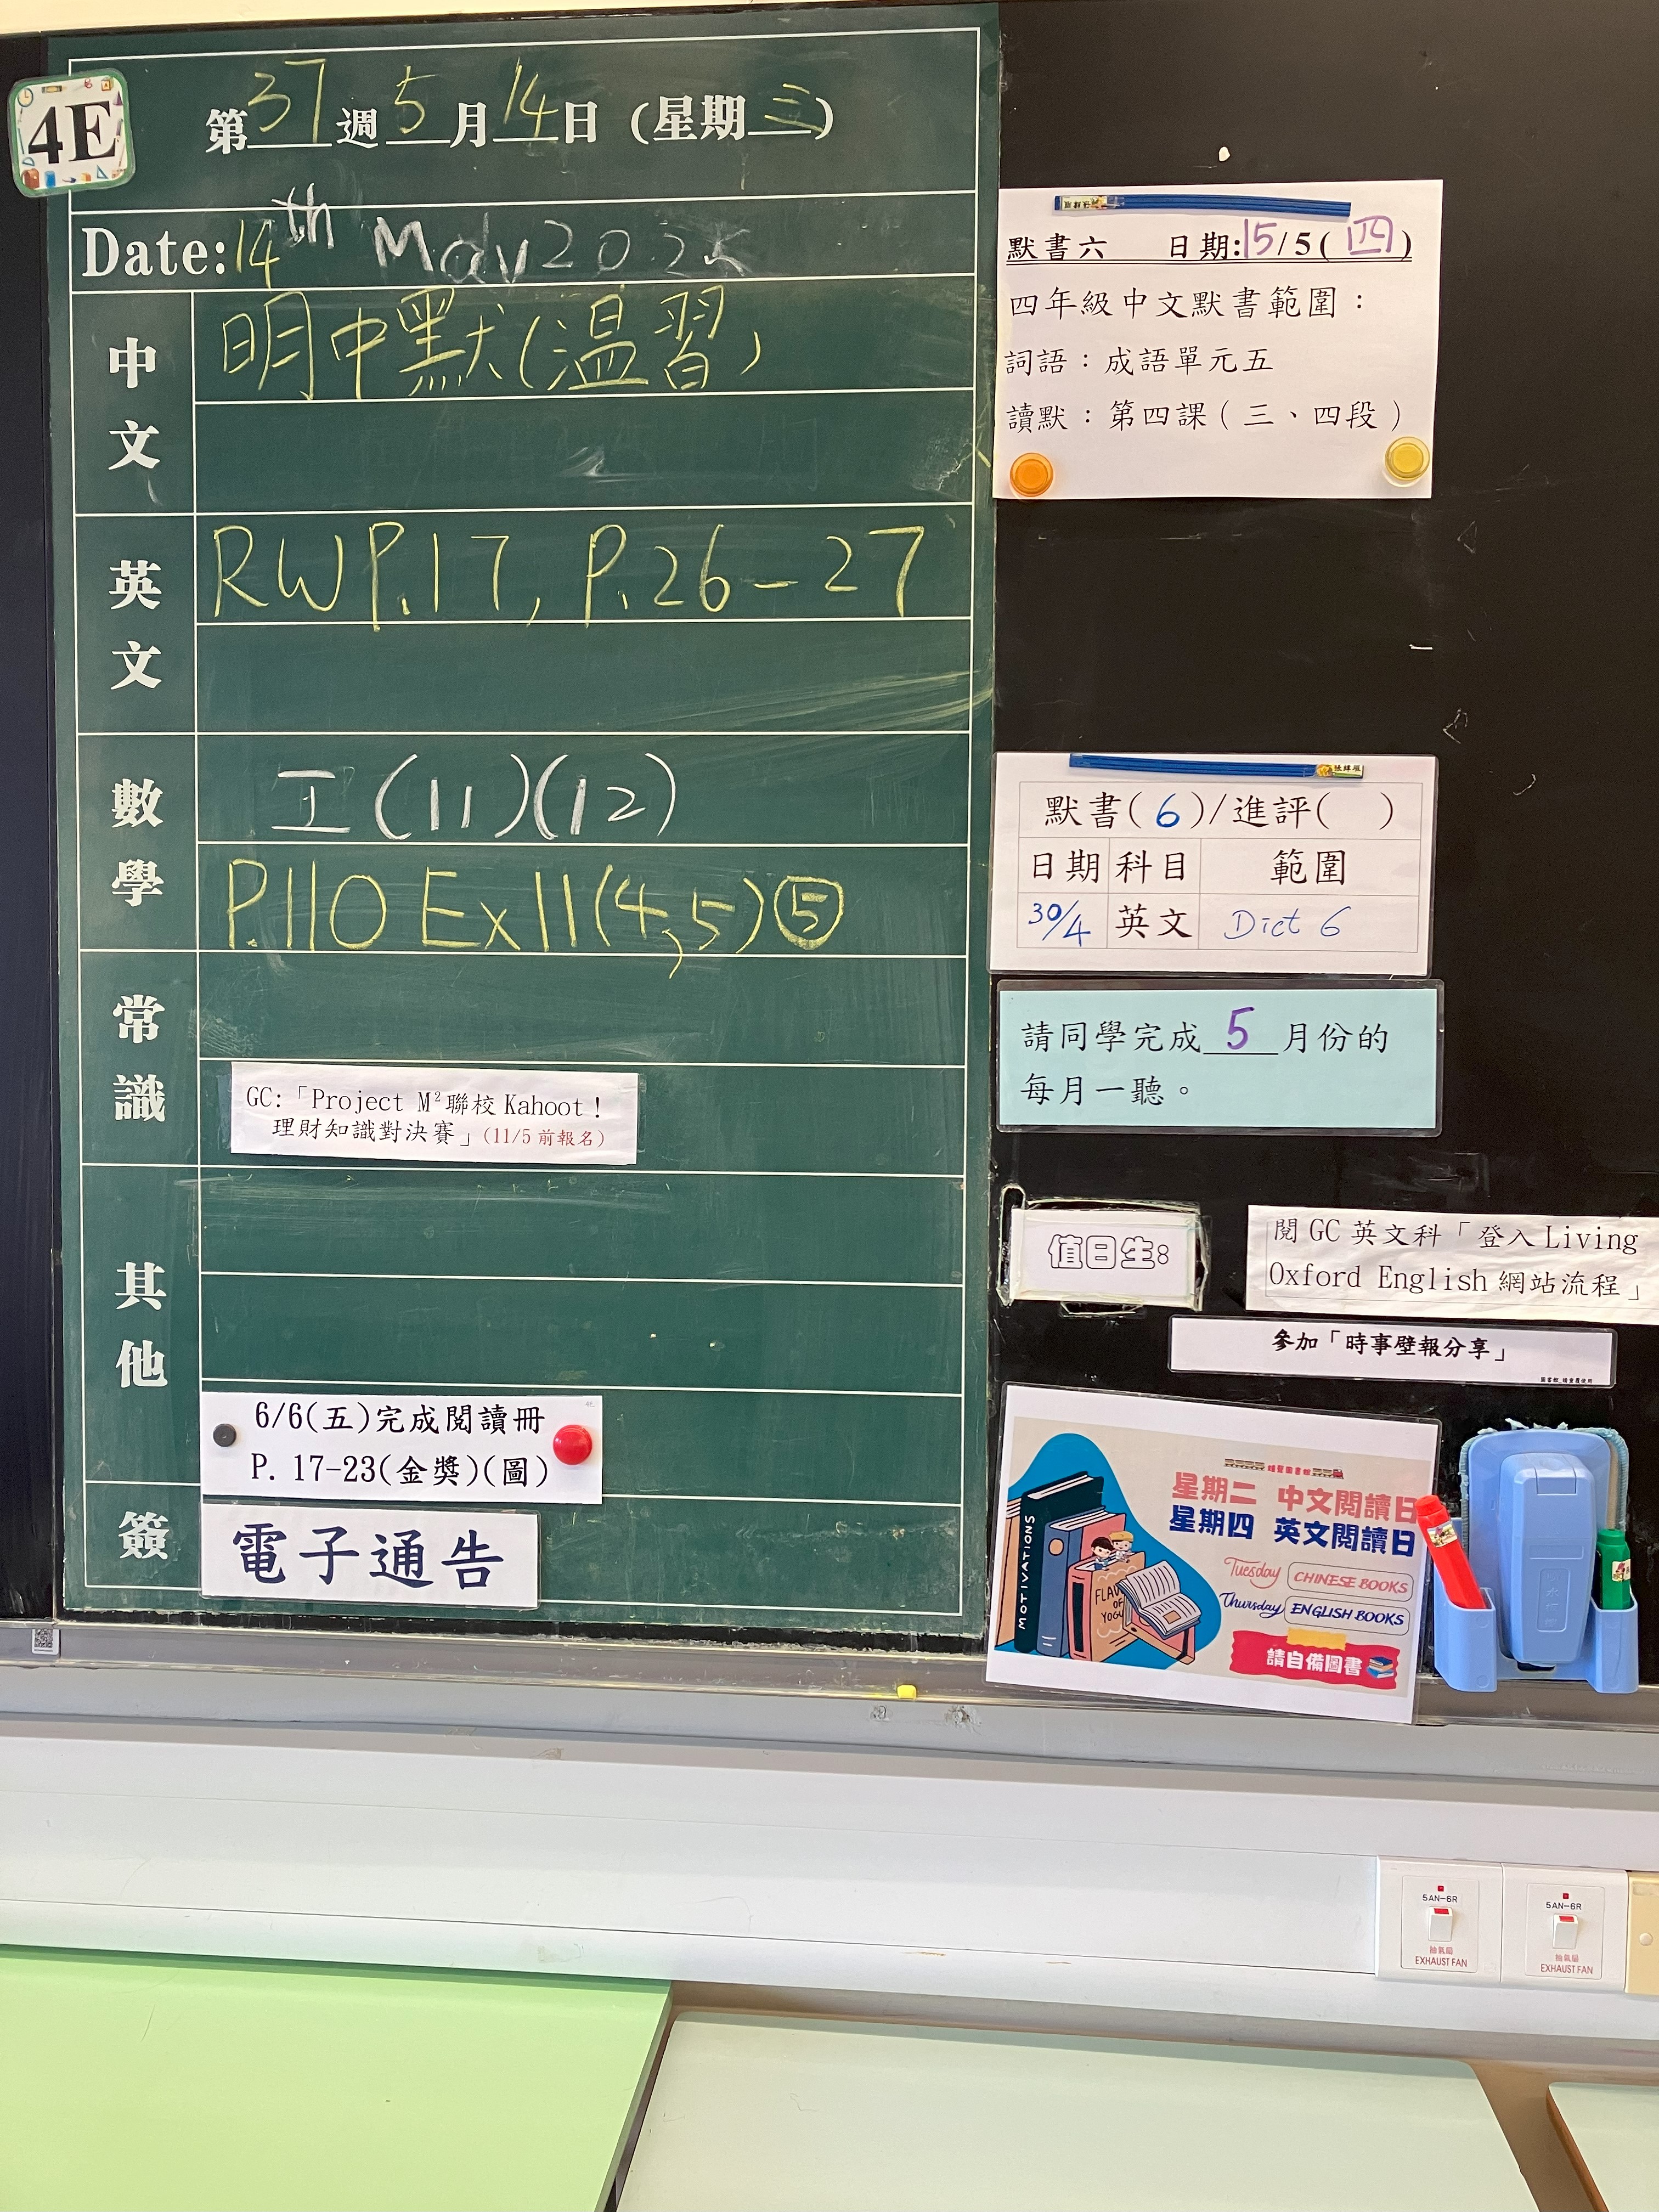 4E
第37週5月14日(星期三)
Date:14th May 2025
中文
明中默(温習)
英文
RWP.17, P.26-27
數學
工(11)(12)
P.110 Ex11(4,5)⑤
常識
GC:「Project M²聯校Kahoot!
理財知識對決賽」(11/5前報名)
其他
6/6(五)完成閱讀冊
P. 17-23(金獎)(圖)
簽
電子通告
默書六 日期:15/5(四)
四年級中文默書範圍:
詞語:成語單元五
讀默:第四課(三、四段)
默書(6)/進評( )
日期 科目 範圍
30/4 英文 Dict 6
請同學完成5月份的
每月一聽。
值日生:
閱GC英文科「登入Living
Oxford English網站流程」
參加「時事壁報分享」
星期二 中文閱讀日
星期四 英文閱讀日
Tuesday CHINESE BOOKS
Thursday ENGLISH BOOKS
請自備圖書
MOTIVATIONS
5AN-6R
抽氣扇
EXHAUST FAN
5AN-6R
抽氣扇
EXHAUST FAN